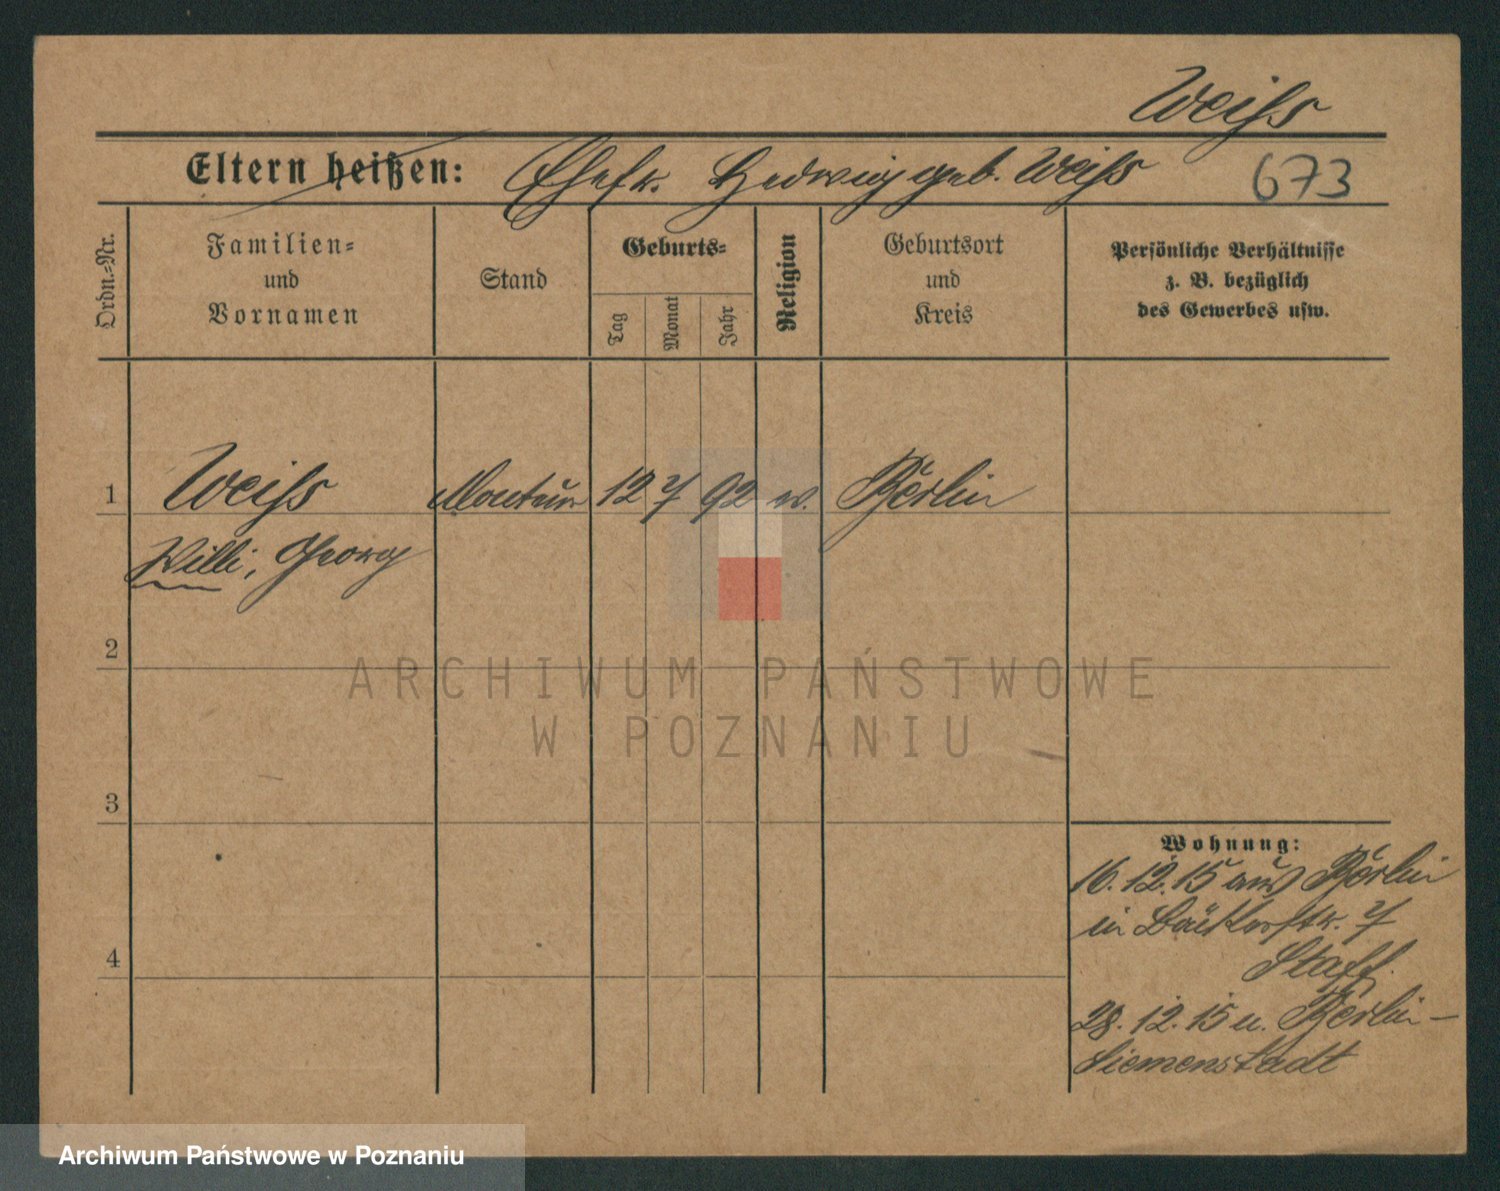 Weiss
Eltern heißen: Ehefr. Hedwig geb. Weiss
673
Ordn.-Nr.
Familien-
und
Vornamen
Stand
Geburts-
Tag
Monat
Jahr
Religion
Geburtsort
und
Kreis
Persönliche Verhältnisse
z. B. bezüglich
des Gewerbes usw.
1 Weiss Monteur 12 7 92 ev. Berlin
Willi, Georg
2
ARCHIWUM PAŃSTWOWE
W POZNANIU
3
Wohnung:
16. 12. 15 aus Berlin
in 7
Staff.
4
28. 12. 15 n. Berlin-
Siemenstadt
Archiwum Państwowe w Poznaniu